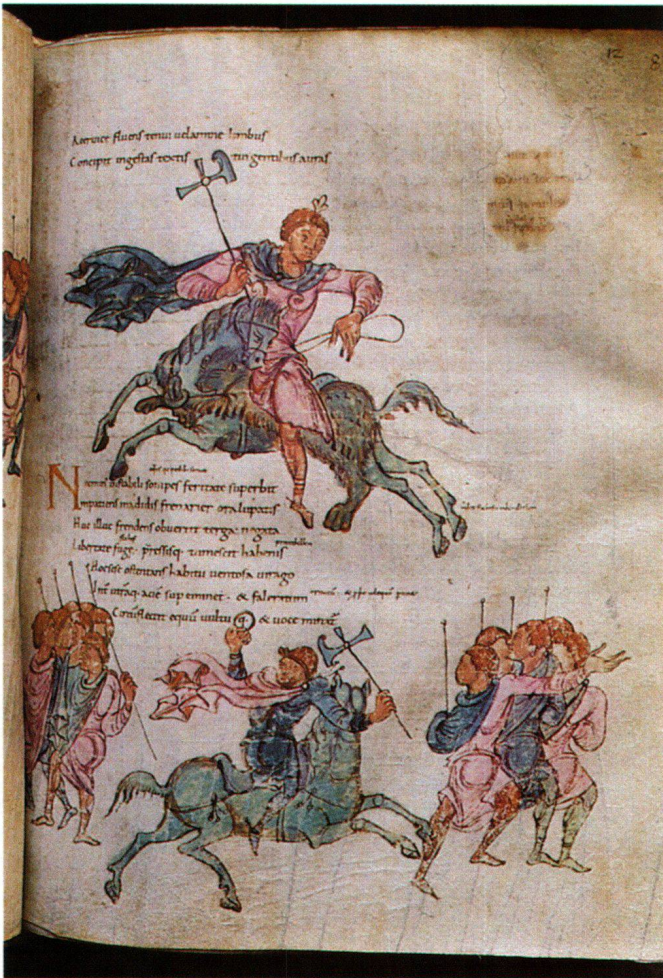 12 8
A ceruice fluens tenui uelamine limbus
Concipit ingestas textis turgentibus auras
Nec minus instabili sonipes feritate superbit
Impatiens madidis frenarier ora lupatis
Huc illuc frendens obuertit terga negata
Libertate fugę pressisq tumescit habenis
Hoc sese ostentans habitu uentosa uirago
Int utraq acie sup eminet & faleratum
Circuflectit equu uultuq & uoce minat